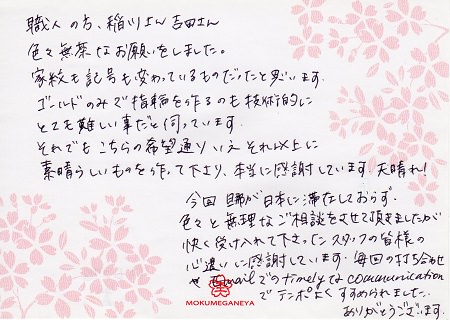 職人の方、稲川さん 吉田さん
色々無茶なお願いをしました。
家紋も記号も変わっているものだったと思います。
ゴールドのみで指輪を作るのも技術的に
とても難しい事だと伺っています。
それでもこちらの希望通り いえ それ以上に
素晴らしいものを作って下さり、本当に感謝しています。天晴れ!
今回 旦那が日本に滞在しておらず、
色々と無理なご相談をさせて頂きましたが
快く受け入れて下さったスタッフの皆様の
心遣いに感謝しています。毎回の打ち合わせ
や email でのtimelyなcommunication
でテンポよくすすめられました。
ありがとうございます。
MOKUMEGANEYA